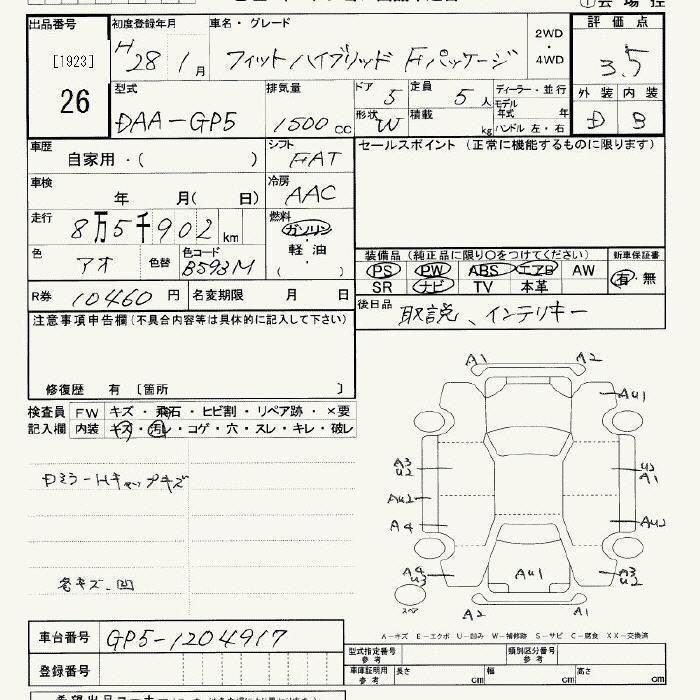 出品番号 初度登録年月 車名・グレード 2WD・4WD 評価点
[1923] H 28 1月 フィットハイブリッド Fパッケージ 3.5
26
型式 排気量 ドア 定員 ディーラー・並行 外装 内装
DAA-GP5 1500cc 5 5人 モデル年式 年 D B
形状 W 積載 kg ハンドル 左・右
車歴 シフト セールスポイント (正常に機能するものに限ります)
自家用・( ) FAT
車検 冷房
年 月( 日) AAC
走行 燃料
8万5千902km ガソリン
軽油
( ・ )
色 色替 色コード 装備品 (純正品に限り○をつけてください) 新車保証書
アオ B593M PS PW ABS エアB AW 有・無
SR ナビ TV 本革
R券 10460円 名変期限 月 日 後日品 取説、インテリキー
注意事項申告欄(不具合内容等は具体的に記入して下さい)
修復歴 有 〔箇所 〕
検査員 FW キズ・飛石・ヒビ割・リペア跡・×要
記入欄 内装 キズ・汚レ・コゲ・穴・スレ・キレ・破レ
DミラーHキャップキズ
各キズ、凹
A1 A2
AU1
A3
U2
U2
A1
AU2
A4
AU2
A4
U3
AU1
A3
U2
スペア
A2 A1
A-キズ E-エクボ U-凹み W-補修跡 S-サビ C-腐食 XX-交換済
車台番号 GP5-1204917
型式指定番号 参考 類別区分番号 参考
登録番号 車庫証明用 参考 長さ cm 幅 cm 高さ cm